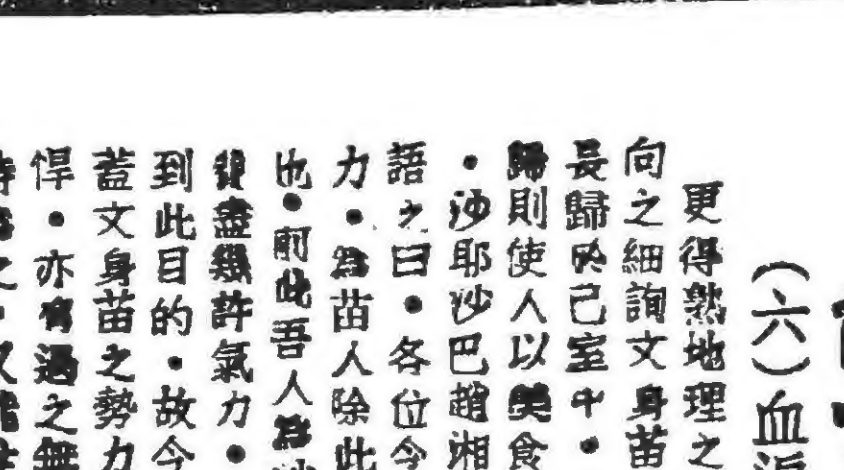 （六）血
更得熟地理之
向之細詢文身苗
長歸於己室中・
歸則使人以美食
・沙耶沙巴趙湘
語之曰・各位今
力・為苗人除此
也・前此吾人為
費盡幾許氣力・
到此目的・故今
蓋文身苗之勢力
悍・亦有過之無